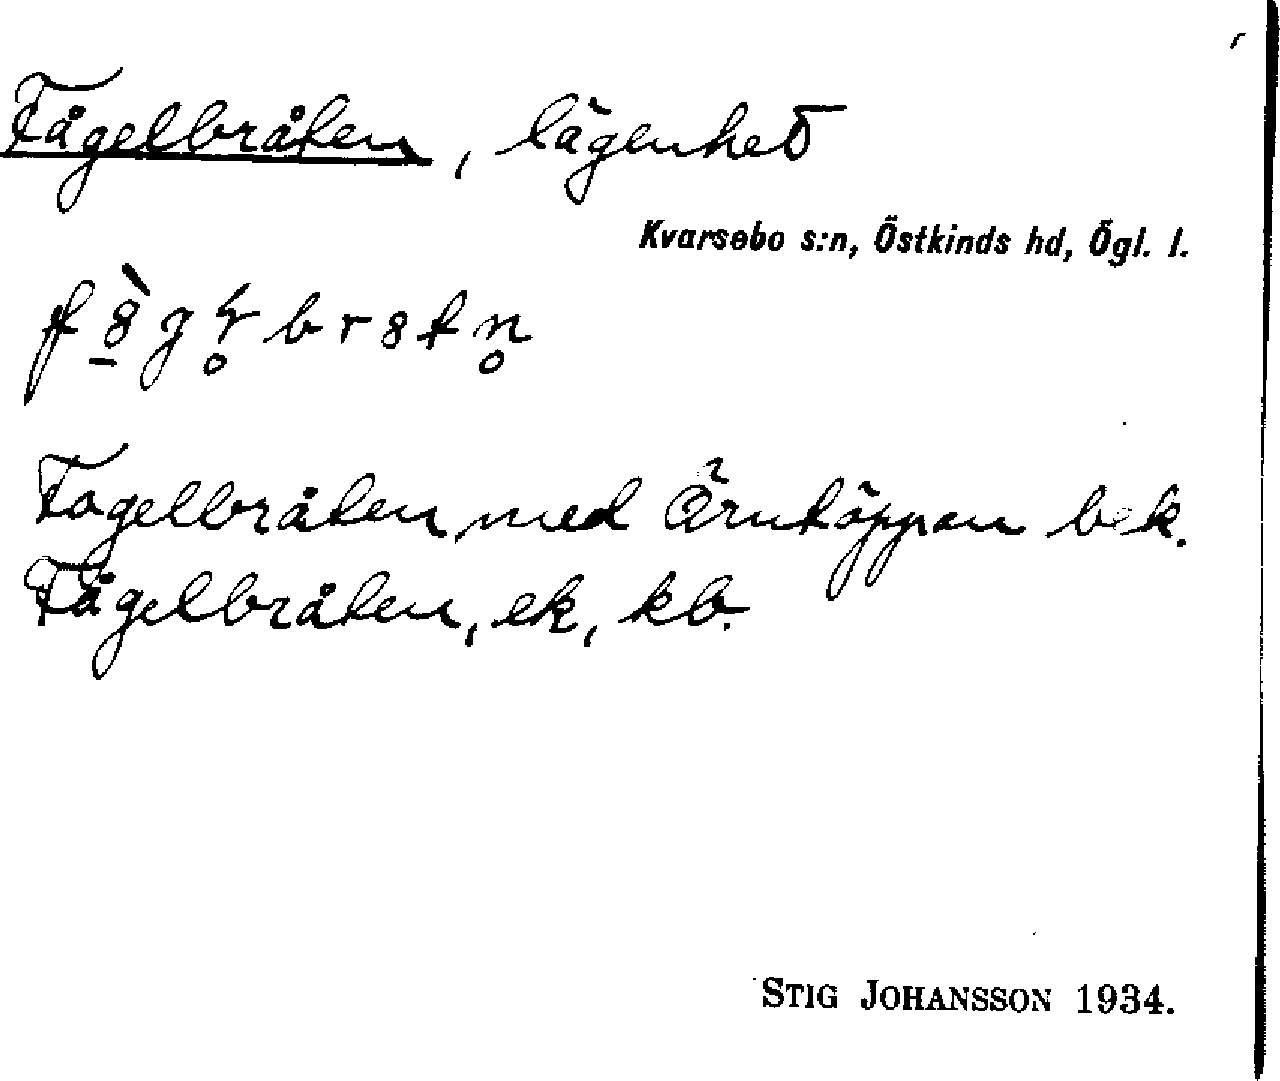 Fågelbråten, lägenhet
Kvarsebo s:n, Östkinds hd, Ögl. l.
Fogelbråten, med Örntöppan bek.
Fågelbråten, ek, kb.
STIG JOHANSSON 1934.